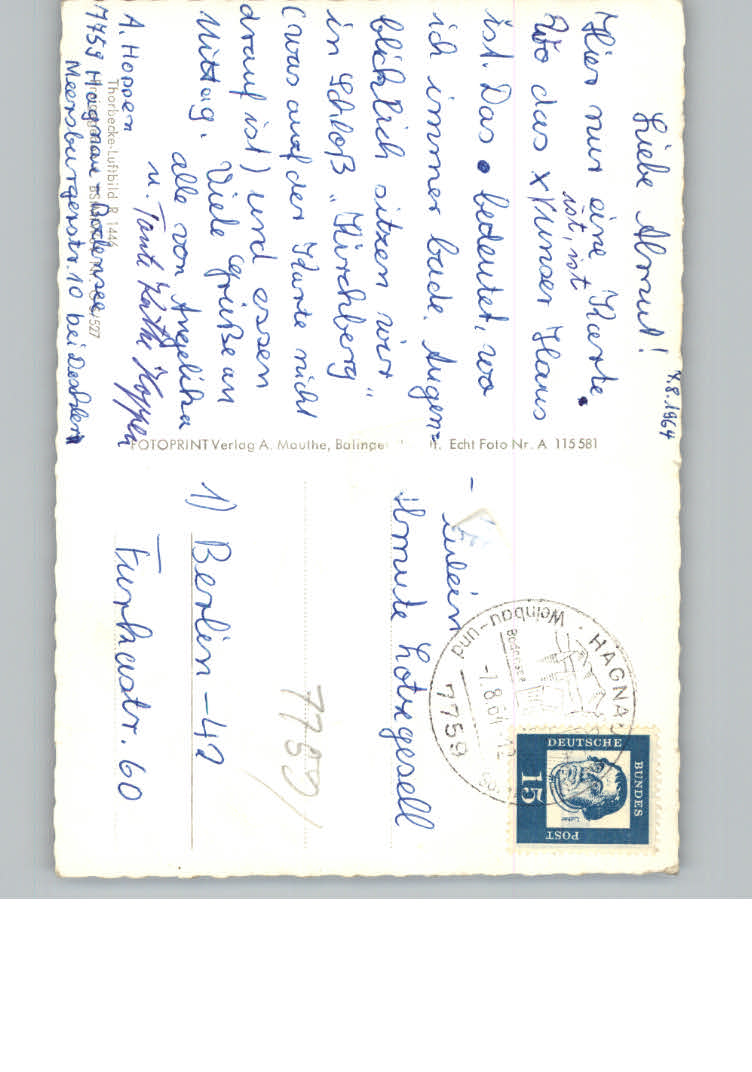 7.8.1964
Liebe Almut!
Hier nur eine Karte.
Wo das x ist, ist unser Haus
ist. Das • bedeutet, wo
ich immer bade. Augen=
blicklich sitzen wir
in Schloß „Kirchberg"
(was auf der Karte nicht
drauf ist) und essen
Mittag. Viele Grüße an
alle von Angelika
u. Tante Käthe Hoppen
A. Hoppen
7759 Hagnau Bodensee
Meersburgerstr. 10 bei
Thorbecke-Luftbild R 1446
FOTOPRINT Verlag A. Mauthe, Balingen Echt Foto Nr. A 115581
Almute Lotregesell
1) Berlin-42
Furhastr. 60
7759/
HAGNAU
Weinbau- und
Bodensee
-7.8.64-12
7759
DEUTSCHE
BUNDES
POST
15
Luther